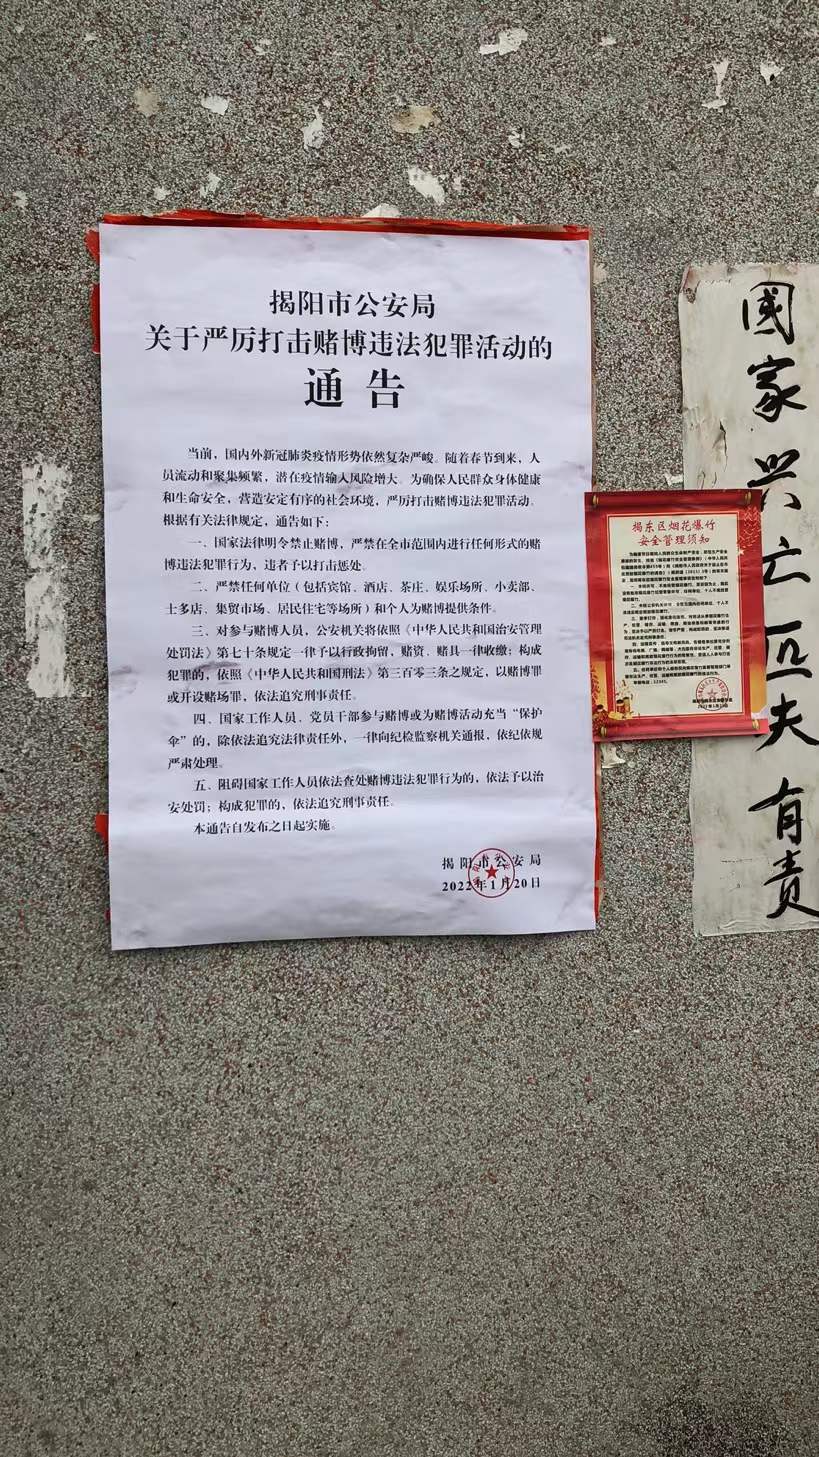 揭阳市公安局
关于严厉打击赌博违法犯罪活动的
通告
当前，国内外新冠肺炎疫情形势依然复杂严峻。随着春节到来，人
员流动和聚集频繁，潜在疫情输入风险增大。为确保人民群众身体健康
和生命安全，营造安定有序的社会环境，严厉打击赌博违法犯罪活动。
根据有关法律规定，通告如下：
一、国家法律明令禁止赌博，严禁在全市范围内进行任何形式的赌
博违法犯罪行为，违者予以打击惩处。
二、严禁任何单位（包括宾馆、酒店、茶庄、娱乐场所、小卖部、
士多店、集贸市场、居民住宅等场所）和个人为赌博提供条件。
三、对参与赌博人员，公安机关将依照《中华人民共和国治安管理
处罚法》第七十条规定一律予以行政拘留，赌资、赌具一律收缴；构成
犯罪的，依照《中华人民共和国刑法》第三百零三条之规定，以赌博罪
或开设赌场罪，依法追究刑事责任。
四、国家工作人员、党员干部参与赌博或为赌博活动充当“保护
伞”的，除依法追究法律责任外，一律向纪检监察机关通报，依纪依规
严肃处理。
五、阻碍国家工作人员依法查处赌博违法犯罪行为的，依法予以治
安处罚；构成犯罪的，依法追究刑事责任。
本通告自发布之日起实施。
揭阳市公安局
2022年1月20日
揭东区烟花爆竹
安全管理须知
國家兴亡匹夫有责